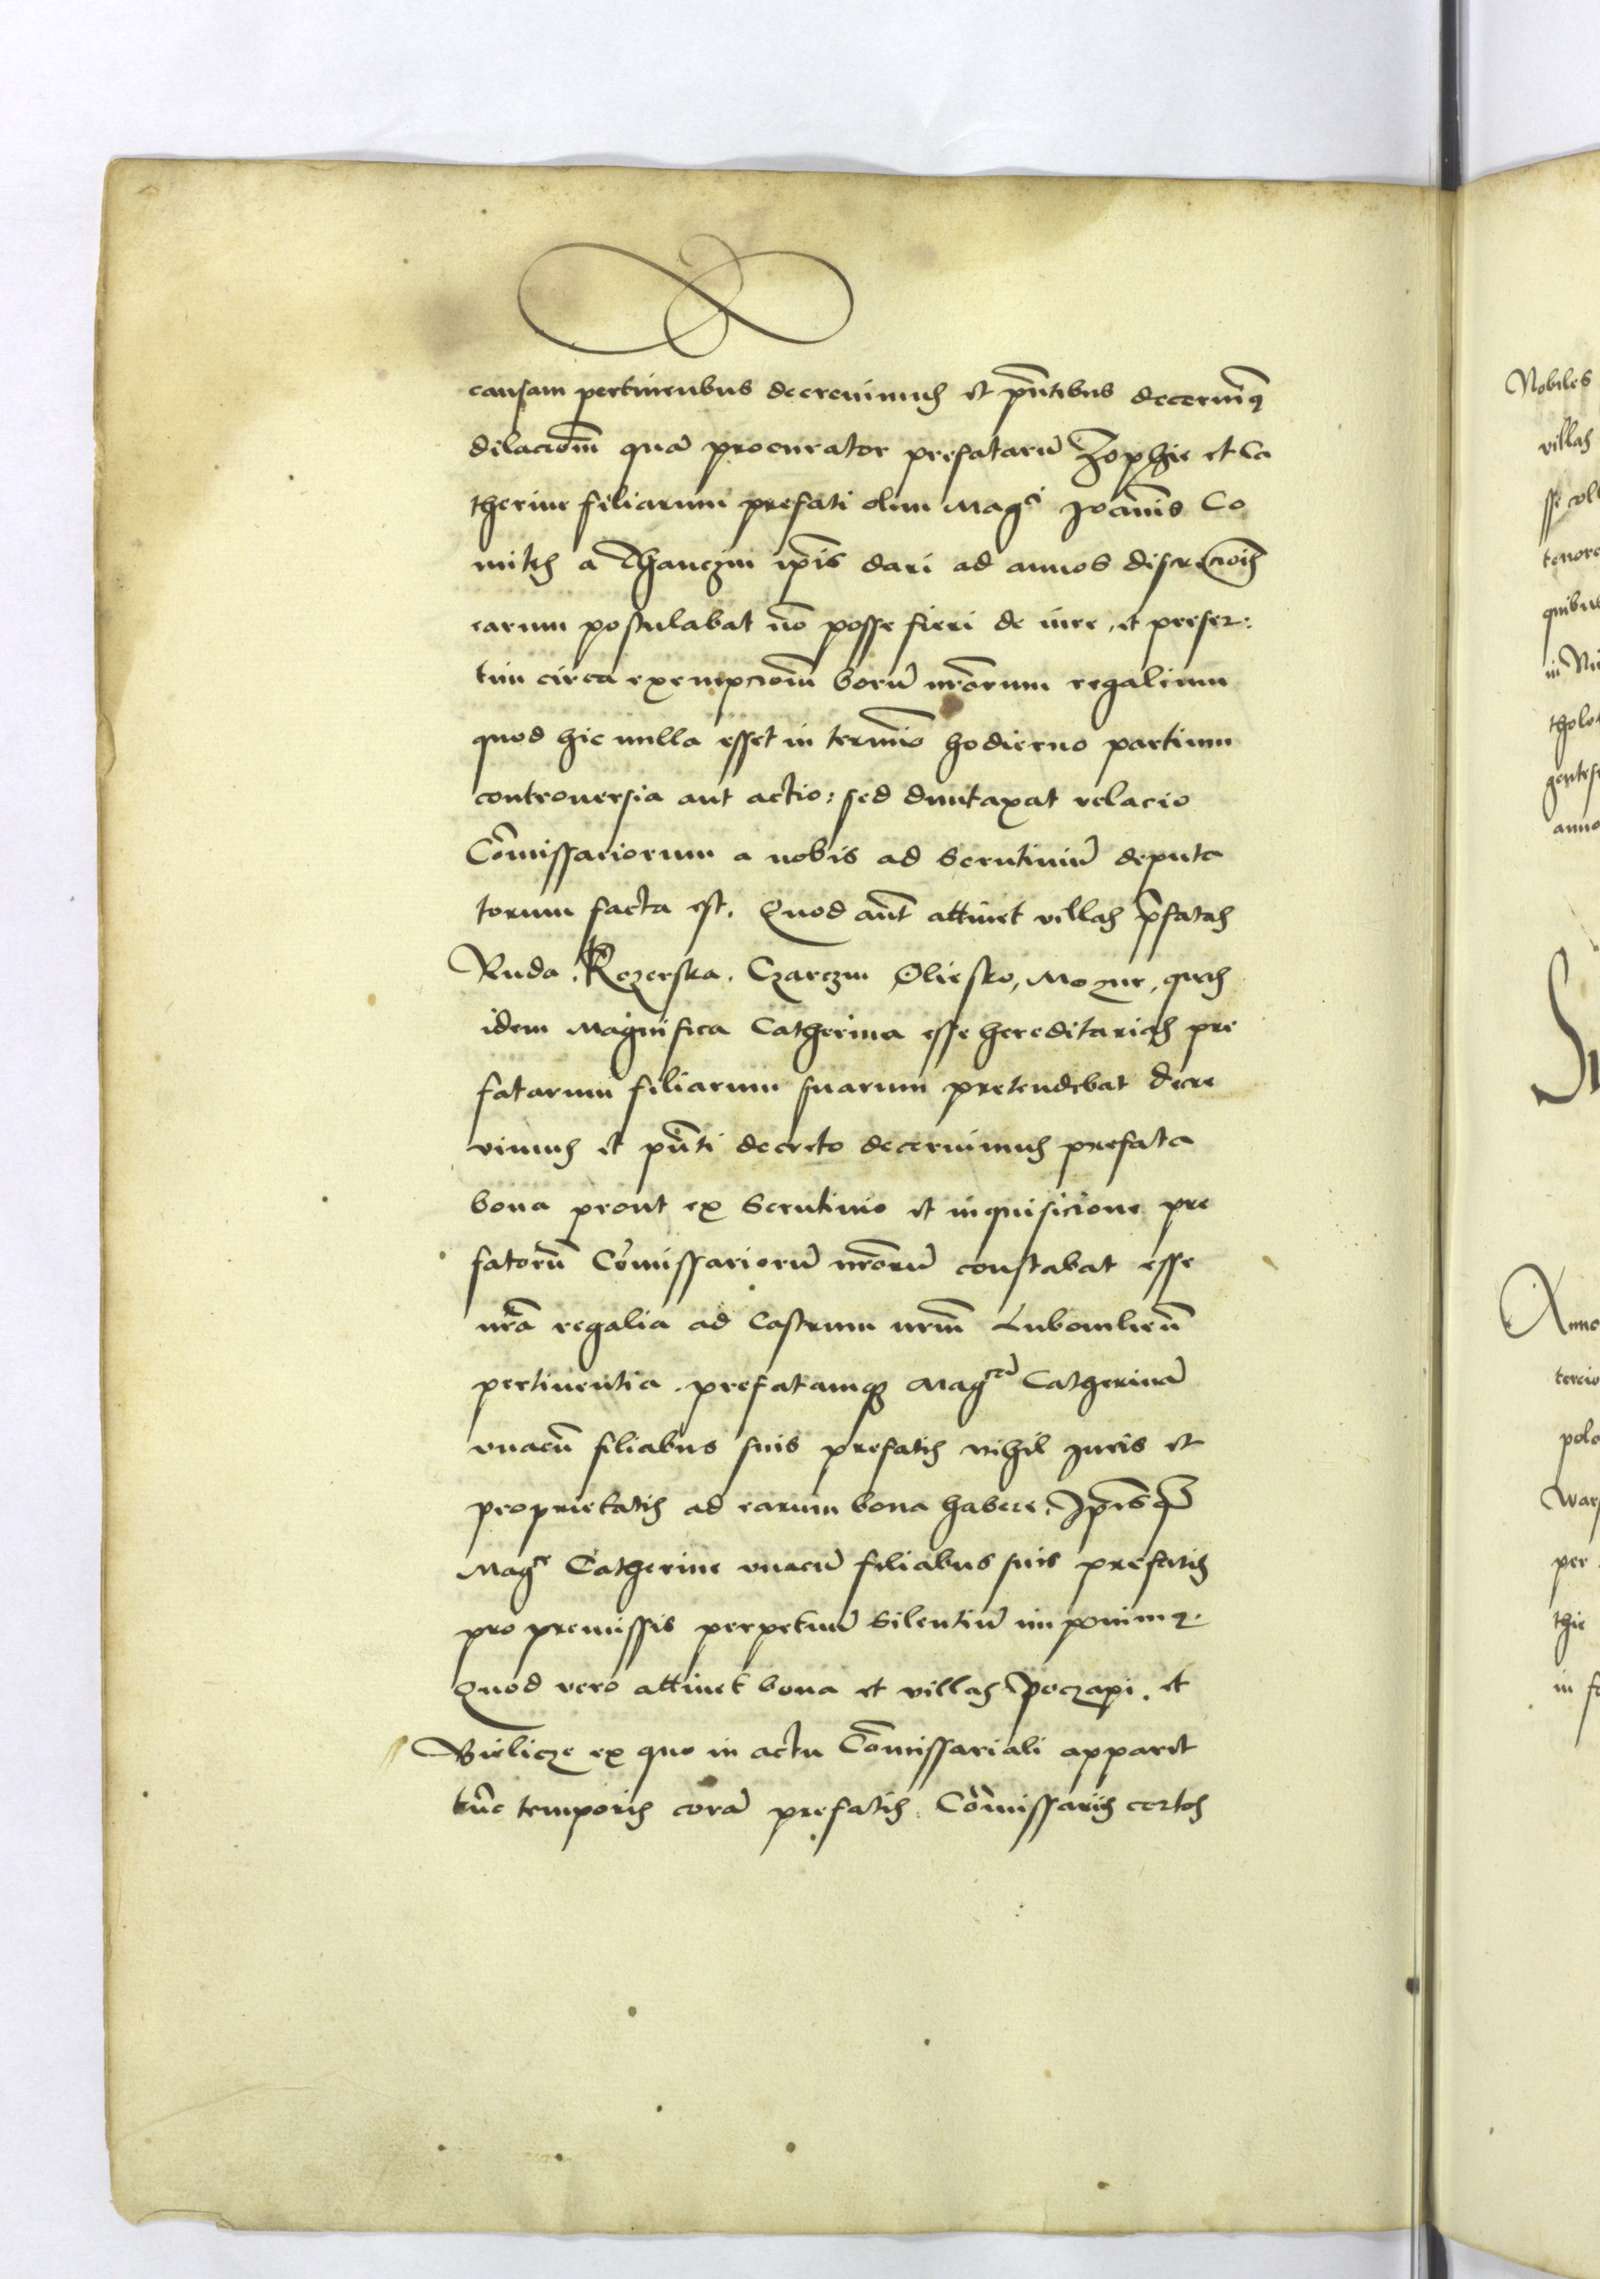 causam pertinentibus decrevimus et pn̄tibus decernim̄q
dilacioīm quā procurator prefatarū Zophie et Ca
therine filiarum prefati olim Magci Joānis Co
mitis a Thanczin ip̄is dari ad annos discrecioīs
earum postulabat nō posse fieri de iure, et preser:
tim circa exempcioīm bonorū nr̄orum regalium
quod hic nulla esset in termīo hodierno partium
controuersia aut actio: sed duntaxat relacio
Cōmissariorum a nobis ad Scrutiniū deputa
torum facta est. Quod aūt attinet villas p̄fatas
Ruda, Rozerska, Czarczin Oliesko, Mozur, quas
idem Magnifica Catherina esse hereditarias pre
fatarum filiarum suarum pretendebat decre
vimus et pn̄ti decreto decernimus prefata
bona prout ex Scrutinio et inquisicione pre
fatorū Cōmissariorū nr̄orū constabat esse
nr̄a regalia ad Castrum nrm̄ Lubomlien̄
pertinentia, prefatamq Magcā Catherinā
vnacū filiabus suis prefatis nihil Juris et
proprietatis ad earum bona habere, Ip̄isq
Magce Catherine vnacū filiabus suis prefatis
pro premissis perpetuū Silentiū imponimq.
Quod vero attinet bona et villas Poczapi, et
Bielicze ex quo in actu Cōmissariali apparet
tūc temporis corā prefatis Cōmissariis certos
Nobiles
villas
tenore
quibus
anno
Anno
tercio
polo
per
thie
in